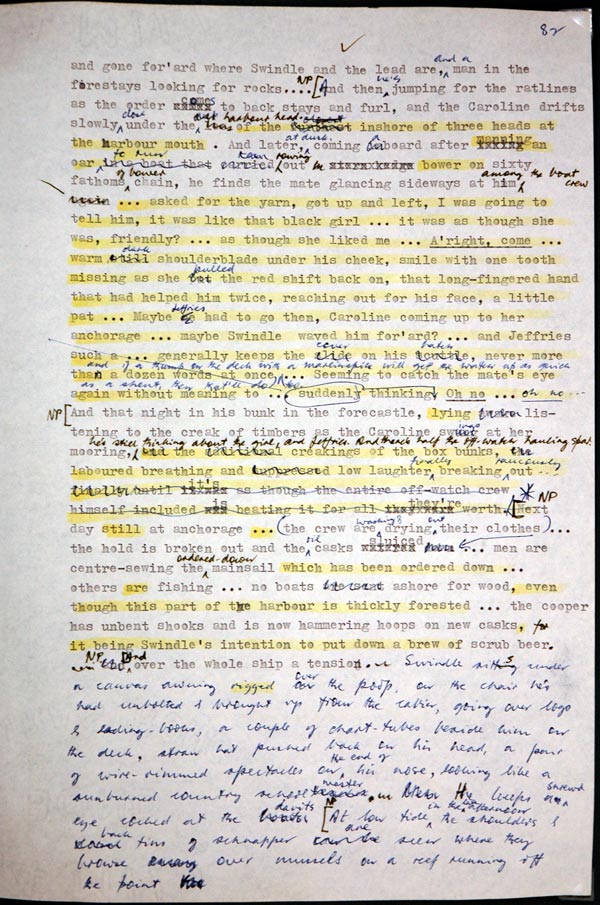 82
and gone for'ard where Swindle and the lead are, and a man in the
forestays looking for rocks.... NP [And then he's jumping for the ratlines
as the order comes to back stays and furl, and the Caroline drifts
slowly close under the harbour head inshore of three heads at
the harbour mouth. And later, at dusk, coming aboard after manning an
oar to row out bower on sixty
fathoms of bower chain, he finds the mate glancing sideways at him among the boat crew
... asked for the yarn, got up and left, I was going to
tell him, it was like that black girl ... it was as though she
was, friendly? ... as though she liked me ... A'right, come ...
warm dark shoulderblade under his cheek, smile with one tooth
missing as she pulled the red shift back on, that long-fingered hand
that had helped him twice, reaching out for his face, a little
pat ... Maybe Jeffries had to go then, Caroline coming up to her
anchorage ... maybe Swindle waved him for'ard? ... and Jeffries
such a ... generally keeps the cover on his hatch, never more
than a dozen words at once... and if a thump on the deck with a marlinspike will get the watch up as quick
as a shout, then that'll do. Seeming to catch the mate's eye
again without meaning to ... suddenly thinking, Oh no ... oh no ...
NP [And that night in his bunk in the forecastle, lying lis-
tening to the creak of timbers as the Caroline at her
he's still thinking about the girl, and Jeffries. And there's half the off-watch hauling
mooring, creakings of the box bunks,
laboured breathing and low laughter, finally breaking out ... raucously
finally, until it's as though the entire off-watch crew
himself included is beating it for all they're worth. * NP [Next
day still at anchorage ... (the crew are washing & drying out their clothes) ...
the hold is broken out and the oil casks sluiced ... men are
centre-sewing the ordered-down mainsail which has been ordered down ...
others are fishing ... no boats ashore for wood, even
though this part of the harbour is thickly forested ... the cooper
has unbent shooks and is now hammering hoops on new casks, for
it being Swindle's intention to put down a brew of scrub beer.
NP And over the whole ship a tension ... Swindle sits under
a canvas awning rigged over the poop, on the chair he's
had unbolted & brought up from the cabin, going over logs
& lading-books, a couple of chart-tubes beside him on
the deck, straw hat pushed back on his head, a pair
of wire-rimmed spectacles on the end of his nose, looking like a
sunburned country schoolmaster ... He keeps a shrewd
eye cocked at the davits NP [At low tide in the afternoon the shoulders &
back fins of schnapper are seen where they
browse over mussels on a reef running off
the point